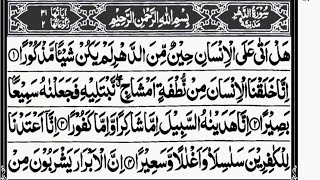 سورة الدهر بسم الله الرحمن الرحيم
هَلْ اَتٰى عَلَى الْاِنْسَانِ حِيْنٌ مِّنَ الدَّهْرِ لَمْ يَكُنْ شَيْـًٔا مَّذْكُوْرًا ۝۱
اِنَّا خَلَقْنَا الْاِنْسَانَ مِنْ نُّطْفَةٍ اَمْشَاجٍ نَّبْتَلِيْهِ فَجَعَلْنٰهُ سَمِيْعًۢا
بَصِيْرًا ۝۲ اِنَّا هَدَيْنٰهُ السَّبِيْلَ اِمَّا شَاكِرًا وَّاِمَّا كَفُوْرًا ۝۳ اِنَّاۤ اَعْتَدْنَا
لِلْكٰفِرِيْنَ سَلٰسِلَا۟ وَاَغْلٰلًا وَّسَعِيْرًا ۝۴ اِنَّ الْاَبْرَارَ يَشْرَبُوْنَ مِنْ